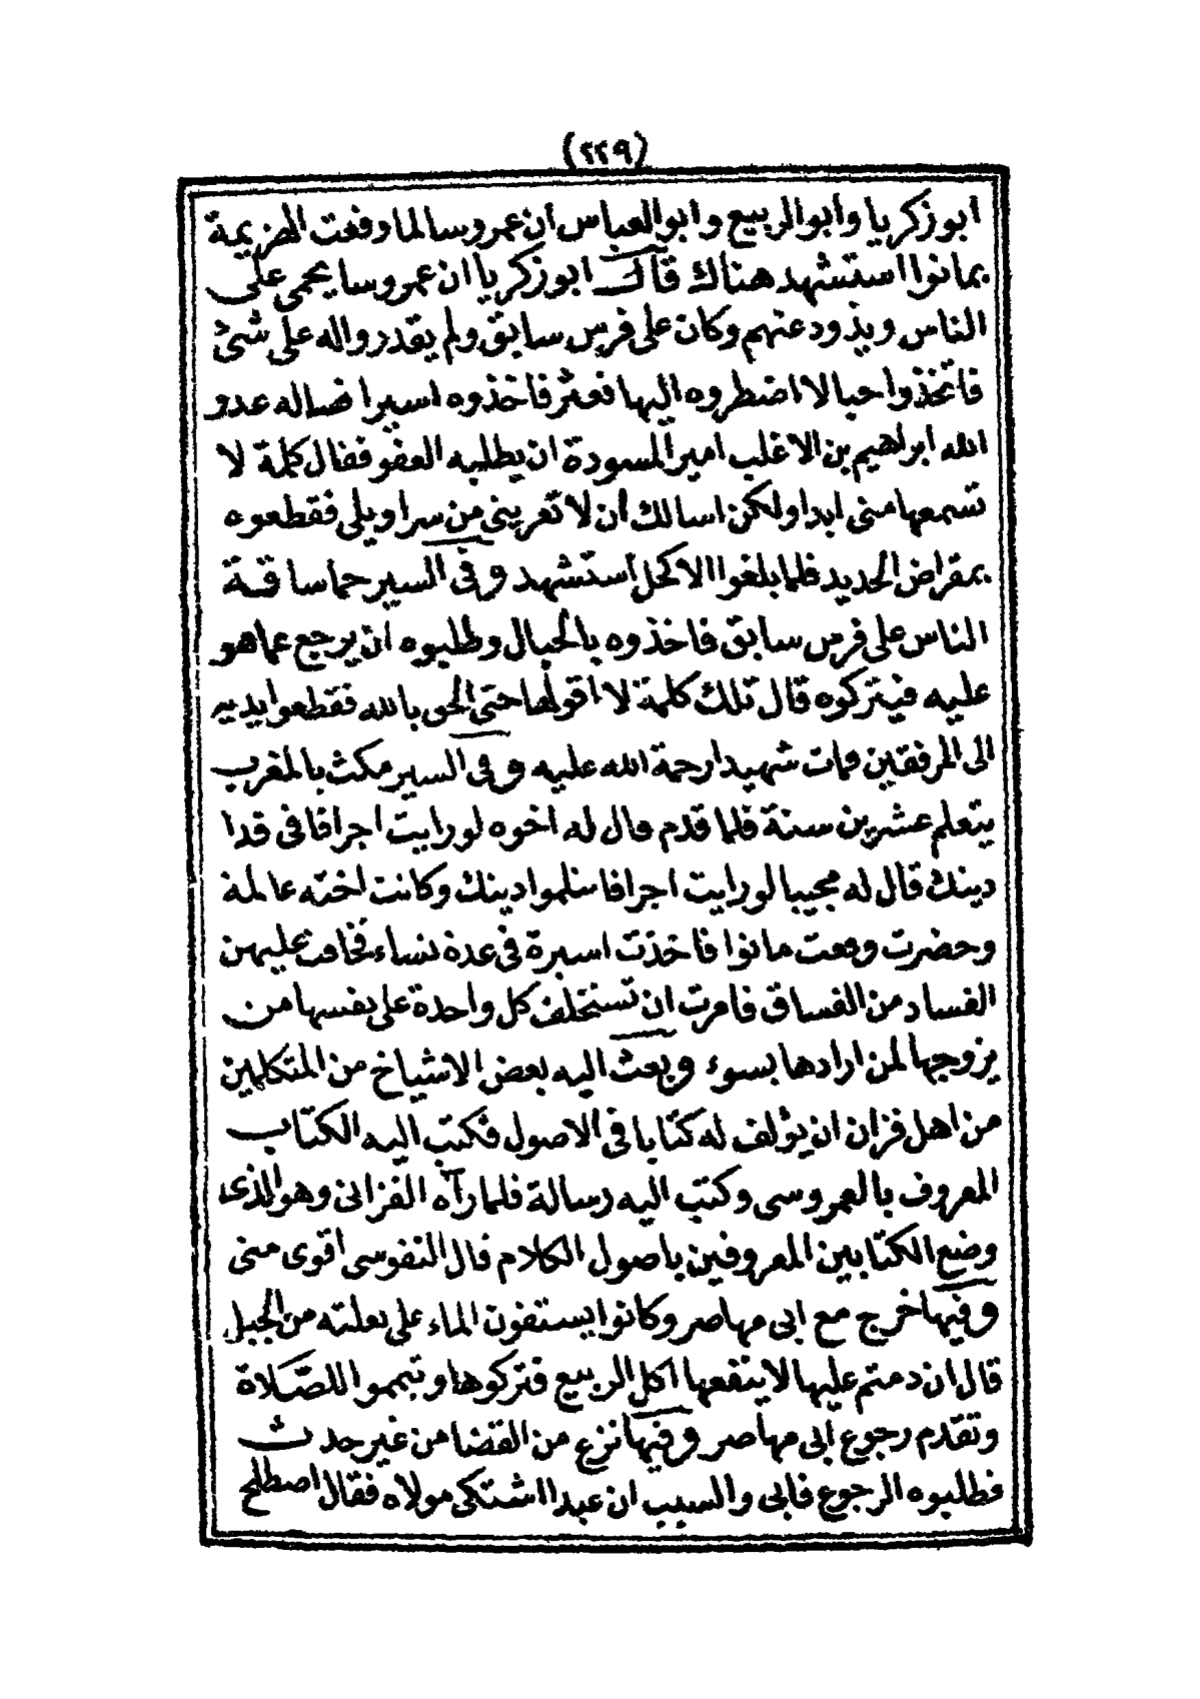 (٢٢٩)
ابو زكريا وابو الربيع وابو العباس ان عمروسا لما وقعت الهزيمة
بمانوا استشهد هناك قال ابو زكريا ان عمروسا يحمي على
الناس ويذود عنهم وكان على فرس سابق ولم يقدروا له على شئ
فاتخذوا حبالا اضطروه اليها فعثر فاخذوه اسيرا فساله عدو
الله ابراهيم بن الاغلب امير المسودة ان يطلبه العفو فقال كلمة لا
تسمعها منى ابدا ولكن اسالك ان لا تعرينى من سراويلى فقطعوه
بمقراض الحديد فلما بلغوا الاكحل استشهد وفى السير حما ساقة
الناس على فرس سابق فاخذوه بالحبال وطلبوه ان يرجع عما هو
عليه فيتركوه قال تلك كلمة لا اقولها حتى الحق بالله فقطعوا يديه
الى المرفقين فمات شهيدا رحمة الله عليه وفى السير مكث بالمغرب
يتعلم عشرين سنة فلما قدم قال له اخوه لو رايت اجرافا فى قدا
دينك قال له مجيبا لو رايت اجرافا سلموا دينك وكانت اخته عالمة
وحضرت وقعت مانوا فاخذت اسيرة فى عدة نساء فخافت عليهن
الفساد من الفساق فامرت ان تستخلف كل واحدة على نفسها من
يزوجها لمن ارادها بسوء وبعث اليه بعض الاشياخ من المتكلمين
من اهل فزان ان يؤلف له كتابا فى الاصول فكتب اليه الكتاب
المعروف بالعمروسى وكتب اليه رسالة فلما رآه الفزانى وهو الذى
وضع الكتابين المعروفين باصول الكلام قال النفوسى اقوى منى
وفيها خرج مع ابى مهاصر وكانوا يستقون الماء على بغلته من الجبل
قال ان دمتم عليها لا ينفعها اكل الربيع فتركوها وتيمموا للصلاة
وتقدم رجوع ابى مهاصر وفيها نزع من القضا من غير حدث
فطلبوه الرجوع فابى والسبب ان عبدا اشتكى مولاه فقال اصطلح